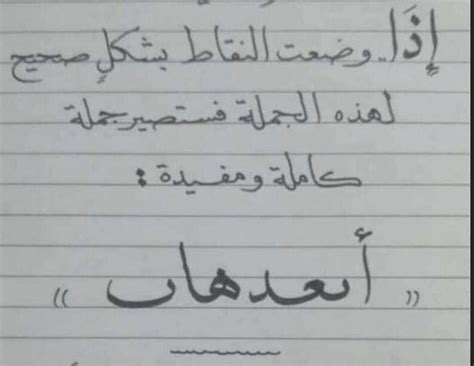 إِذَا.. وضعت النقاط بشكلٍ صحيح
لهذه الجملة فستصير جملة
كاملة ومفيدة :
« أٮعدهاٮ »